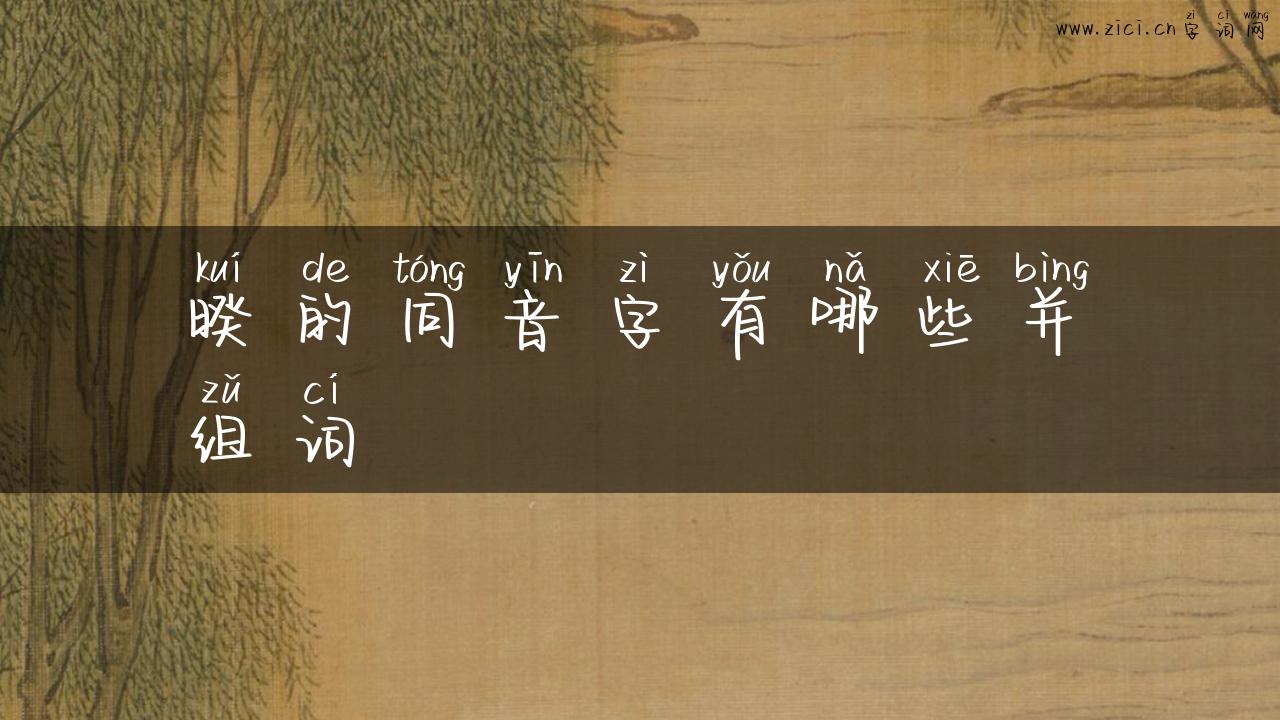 zì cí wǎng
www.zici.cn 字词网
kuí de tóng yīn zì yǒu nǎ xiē bìng
暌的同音字有哪些并
zǔ cí
组词